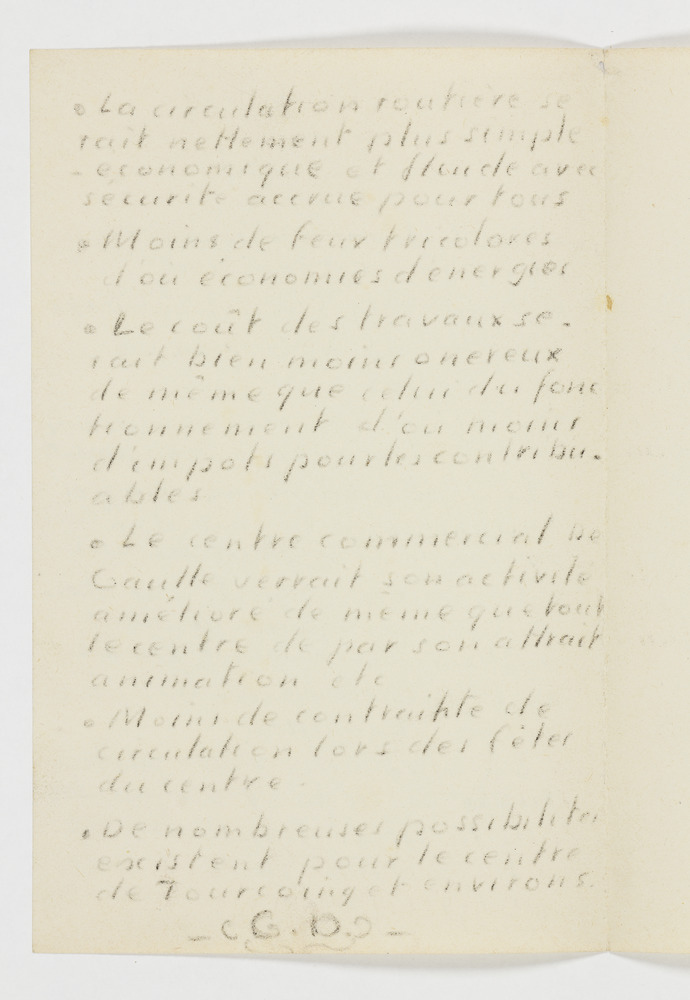 • La circulation routière se
rait nettement plus simple
- economique et fluide avec
sécurité accrue pour tous
• Moins de feux tricolores
d'ou économies d'energies
• Le coût des travaux se-
rait bien moins onereux
de même que celui du fonc
tionnement d'ou moins
d'impots pour les contribu-
ables
• Le centre commercial De
Gaulle verrait son activité
amélioré de même que tout
le centre de par son attrait
animation etc
• Moins de contrainte de
circulation lors des fêtes
du centre.
• De nombreuses possibilites
existent pour le centre
de Tourcoing et environs.
- (G.D.) -